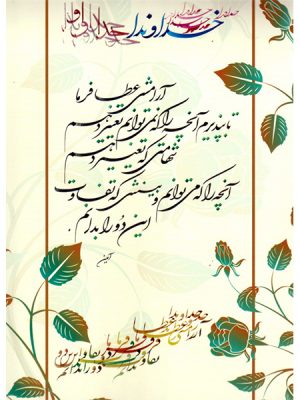 خداوندا
آرامشی عطا فرما
تا بپذیرم آنچه را که نمی توانم تغییر دهم
شهامتی که تغییر دهم
آنچه را که می توانم و بینشی که تفاوت
این دو را بدانم.
آمین